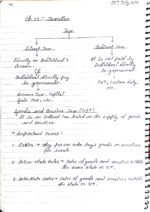 25th July, 2024
Ch-13: Taxation
Tax
Direct Tax
Indirect Tax
Directly on Individual's
Income
It is not paid by
Individual directly
to government
OR
Individual directly pay
to government
GST, Custom duty,
etc.
Income Tax, Capital
Gain Tax, etc.
Goods and Services Tax (GST)
It is an Indirect tax levied on the supply of goods
and services.
Important Terms:
1. Dealer → Any person who buys goods or services
for resale
2. Intra-state Sales → Sales of goods and services within
the same state or UT.
3. Inter-State Sales → Sales of goods and services outside
the state or UT.